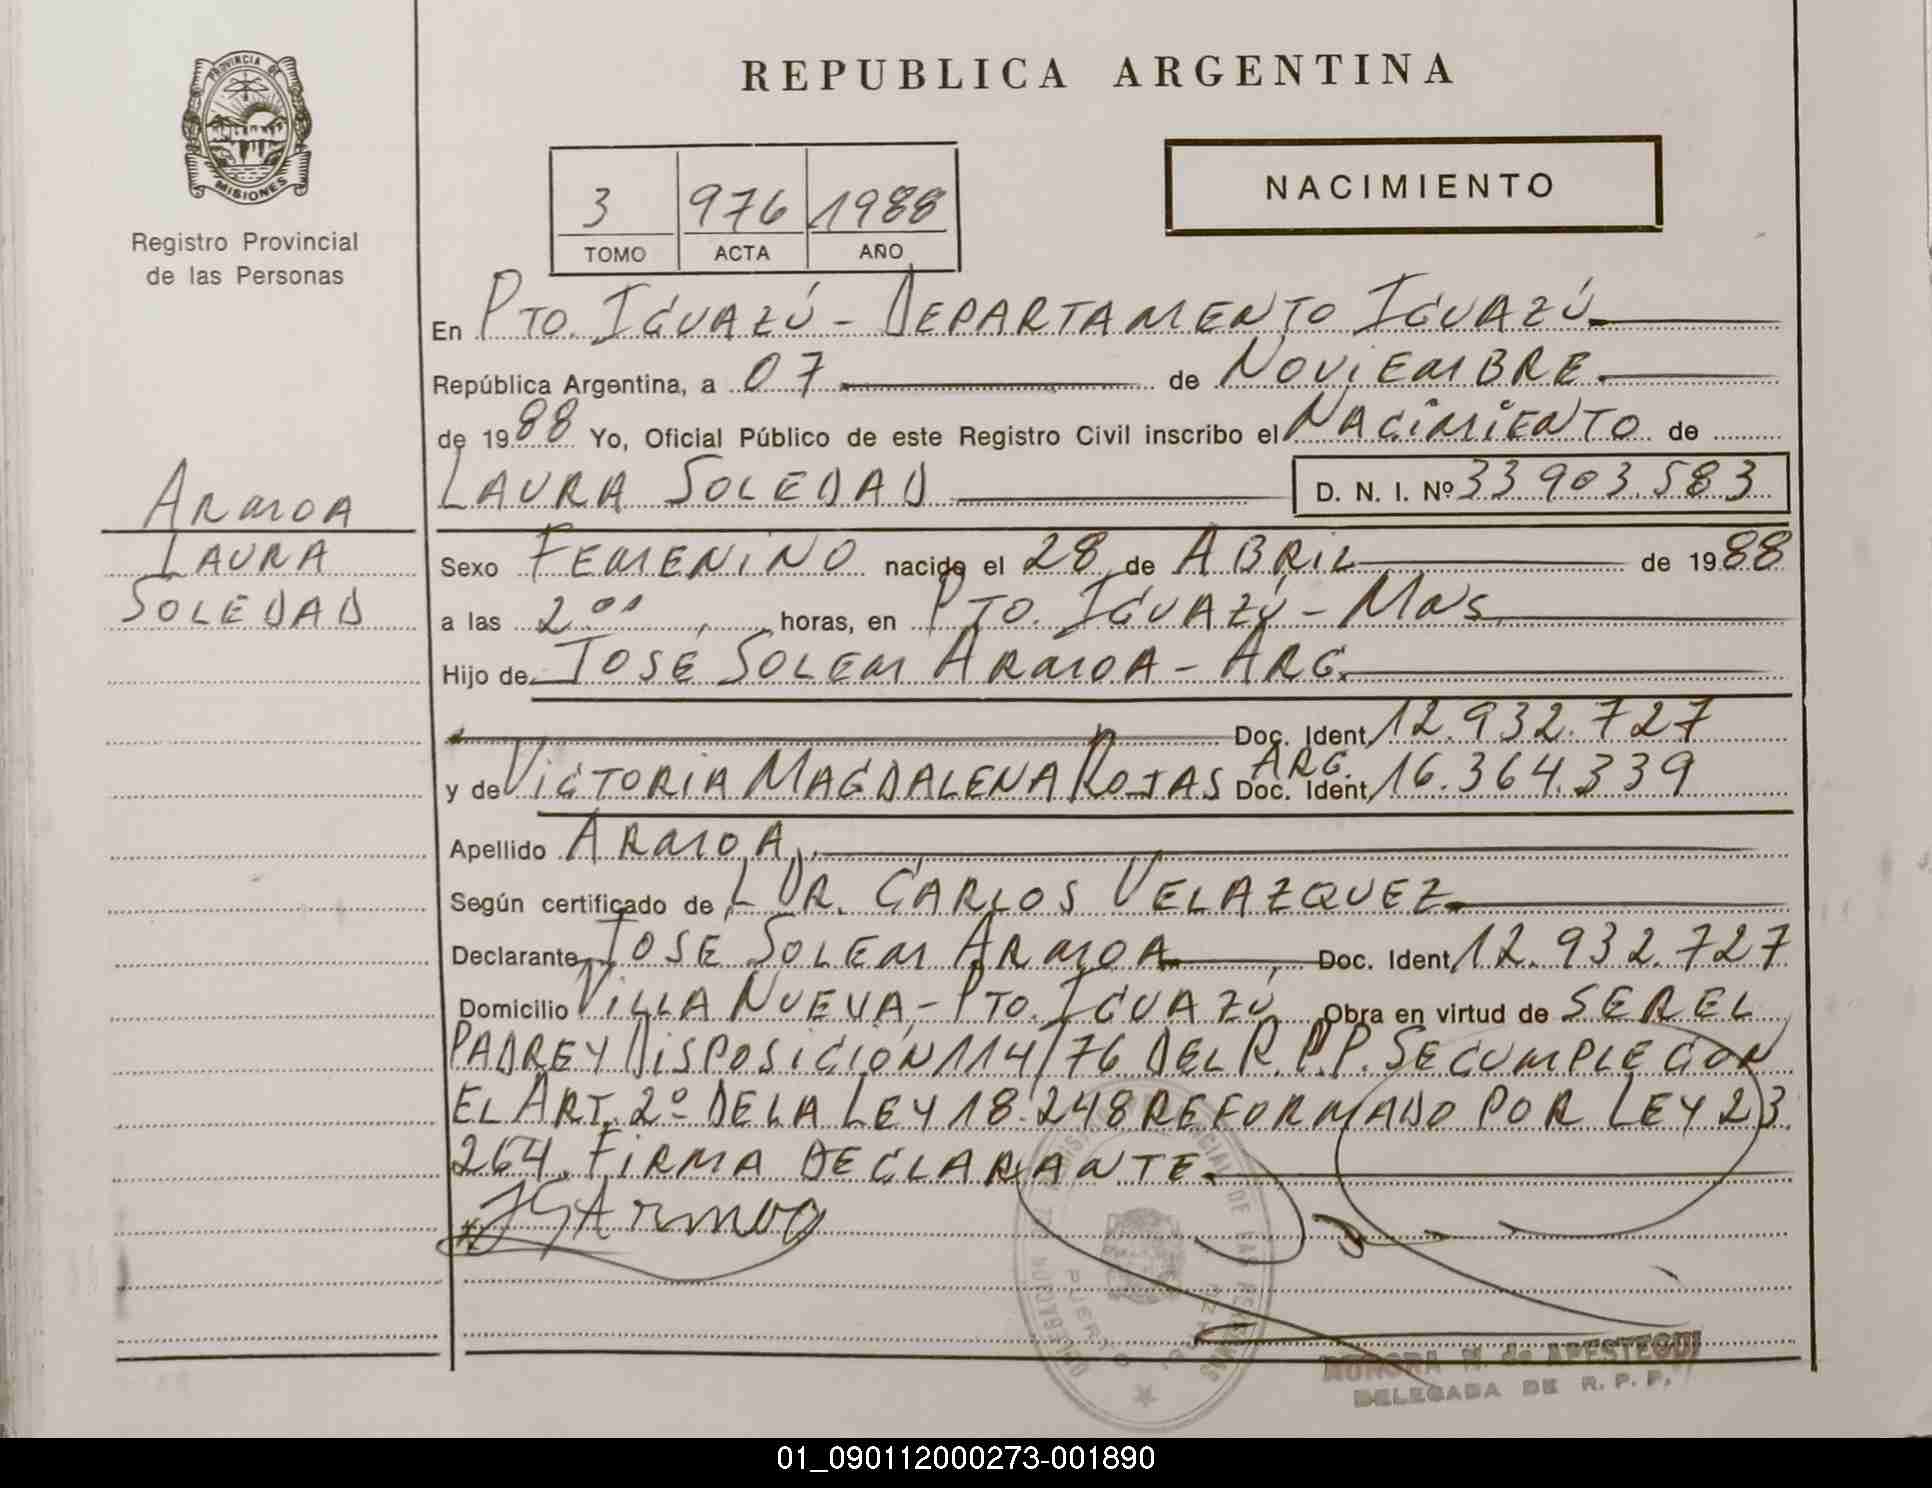 PROVINCIA DE
MISIONES
Registro Provincial
de las Personas
ARMOA
LAURA
SOLEDAD
REPUBLICA ARGENTINA
3 976 1988
TOMO ACTA AÑO
NACIMIENTO
En PTO. IGUAZÚ - DEPARTAMENTO IGUAZÚ
República Argentina, a 07 de NOVIEMBRE
de 1988 Yo, Oficial Público de este Registro Civil inscribo el NACIMIENTO de
LAURA SOLEDAD D. N. I. Nº 33903583
Sexo FEMENINO nacido el 28 de ABRIL de 1988
a las 2⁰⁰ horas, en PTO. IGUAZÚ - Mnes
Hijo de JOSÉ SOLEM ARMOA - ARG.
Doc. Ident 12.932.727
y de VICTORIA MAGDALENA ROJAS ARG. Doc. Ident 16.364.339
Apellido ARMOA
Según certificado de L DR. CARLOS VELAZQUEZ
Declarante JOSÉ SOLEM ARMOA Doc. Ident 12.932.727
Domicilio VILLA NUEVA - PTO. IGUAZÚ Obra en virtud de SER EL
PADRE Y DISPOSICIÓN 114/76 DEL R.P.P. SE CUMPLE CON
EL ART. 2º DE LA LEY 18.248 REFORMADO POR LEY 23.
264. FIRMA DECLARANTE.
JSArmoa
AURORA N. de APESTEGUI
DELEGADA DE R. P. P.
01_090112000273-001890